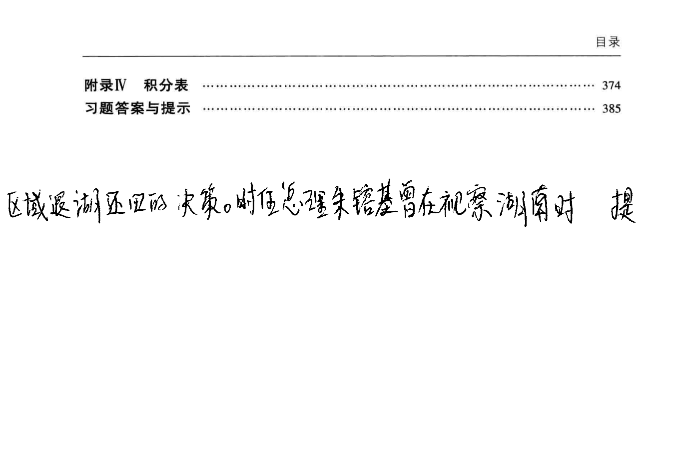 目录
附录Ⅳ 积分表 …………………………………………………………………… 374
习题答案与提示 …………………………………………………………………… 385
区域退湖还田的决策。时任总理朱镕基曾在视察湖南时 提